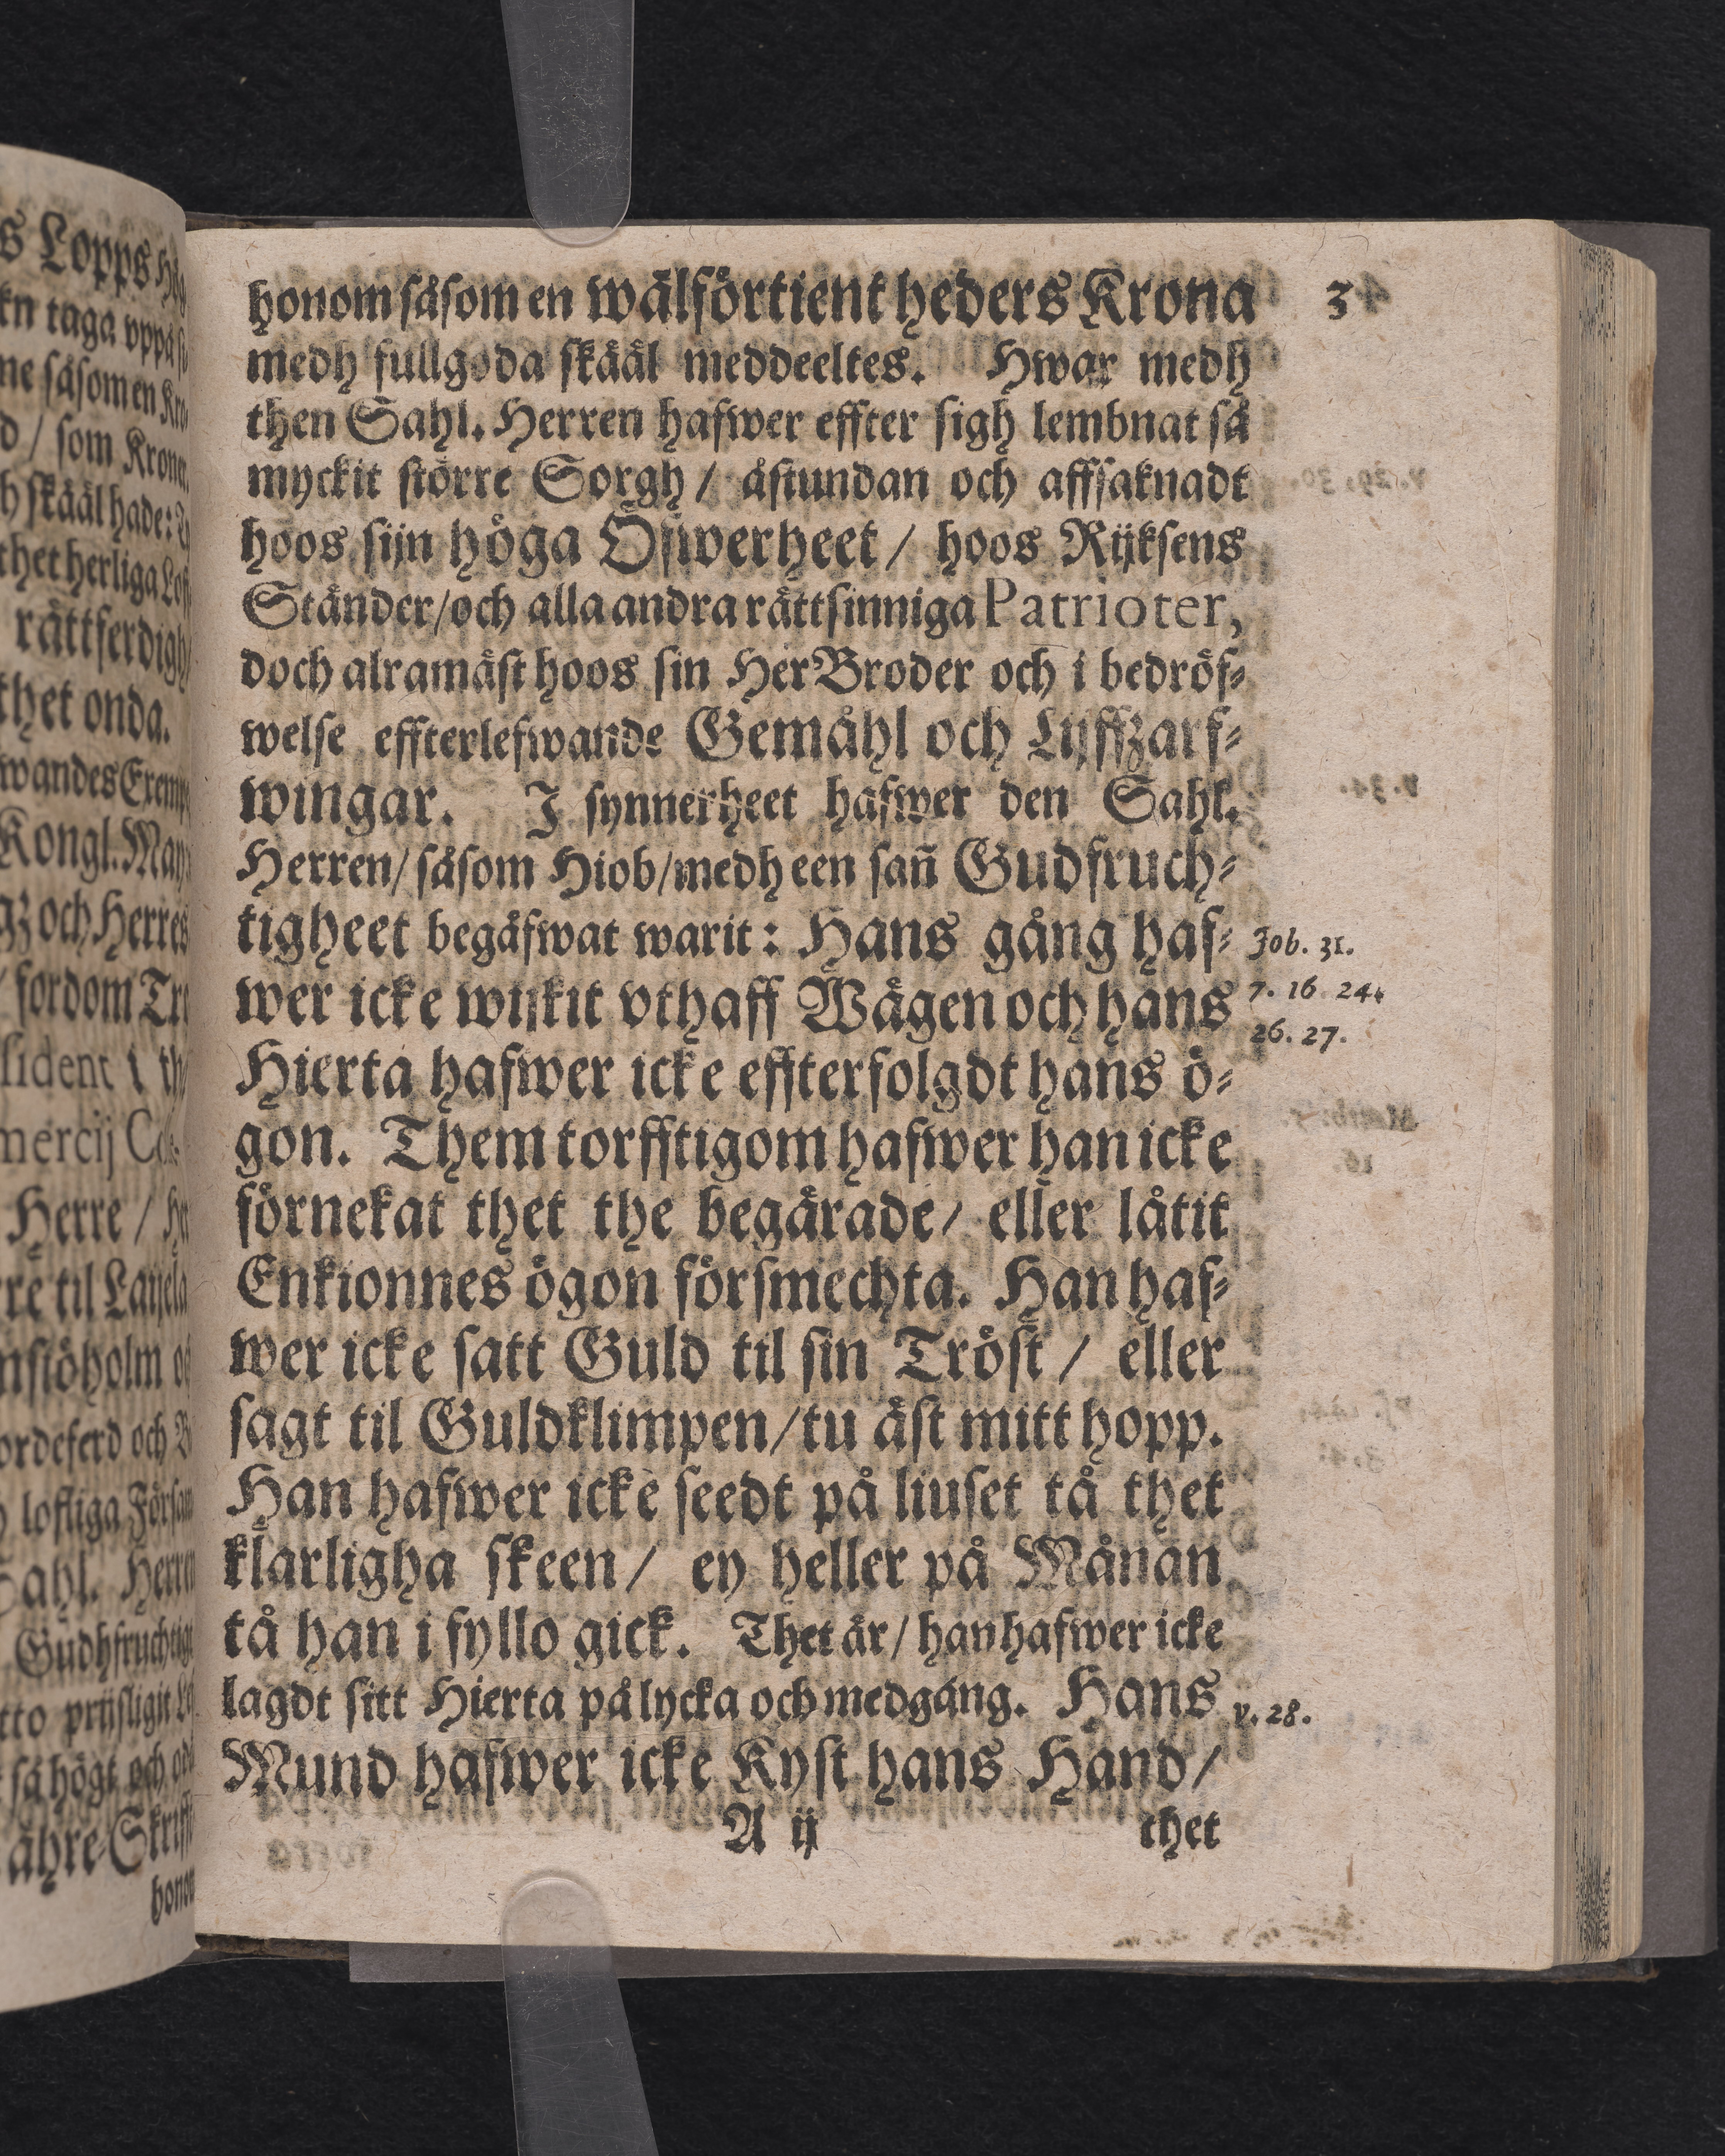 honom såsom en wälförtient heders Krona
3
medh fullgoda skääl meddeeltes. Hwar medh
then Sahl. Herren hafwer effter sigh lembnat så
myckit större Sorgh / åstundan och affsaknadt
hoos sijn höga Öfwerheet / hoos Rijksens
Ständer/och alla andra rättsinniga Patrioter,
doch alramäst hoos sin HerBroder och i bedröf-
welse effterlefwande Gemåhl och Lijffzarf-
wingar. I synnerheet hafwer den Sahl.
Herren/ såsom Hiob/medh een sañ Gudfruch-
tigheet begåfwat warit: Hans gång haf-
Job. 31.
wer icke wijkit vthaff Wägen och hans
7. 16 24.
26. 27.
Hierta hafwer icke effterfolgdt hans ö-
gon. Them torfftigom hafwer han icke
förnekat thet the begärade/ eller låtit
Enkionnes ögon försmechta. Han haf-
wer icke satt Guld til sin Tröst / eller
sagt til Guldklimpen/tu äst mitt hopp.
Han hafwer icke seedt på liuset tå thet
klarligha skeen/ ey heller på Månan
tå han i fyllo gick. Thet är/ han hafwer icke
lagdt sitt Hierta på lycka och medgång. Hans
v. 28.
Mund hafwer icke Kyst hans Hand/
A ij
thet